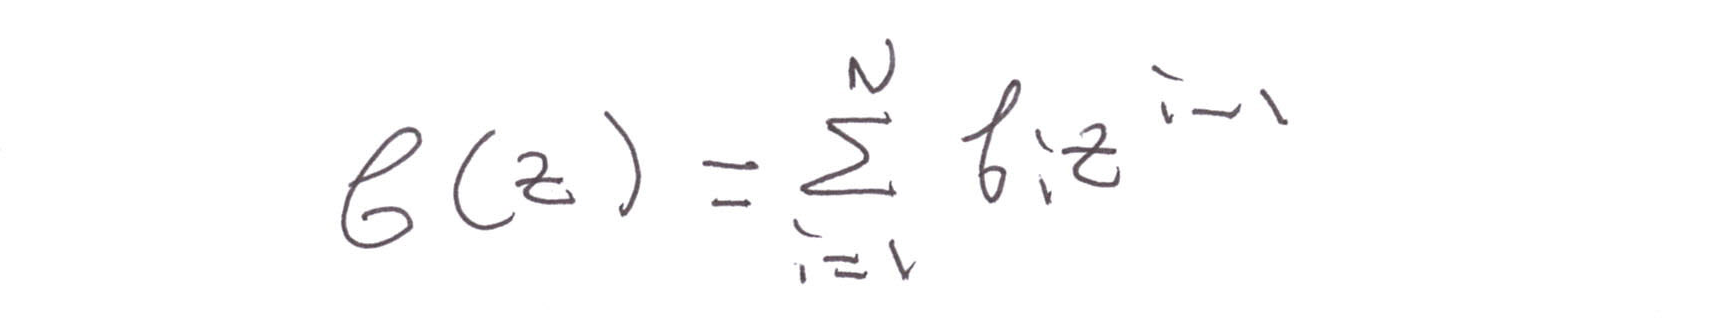 b(z) = \sum_{i=1}^{N} f_i z^{i-1}